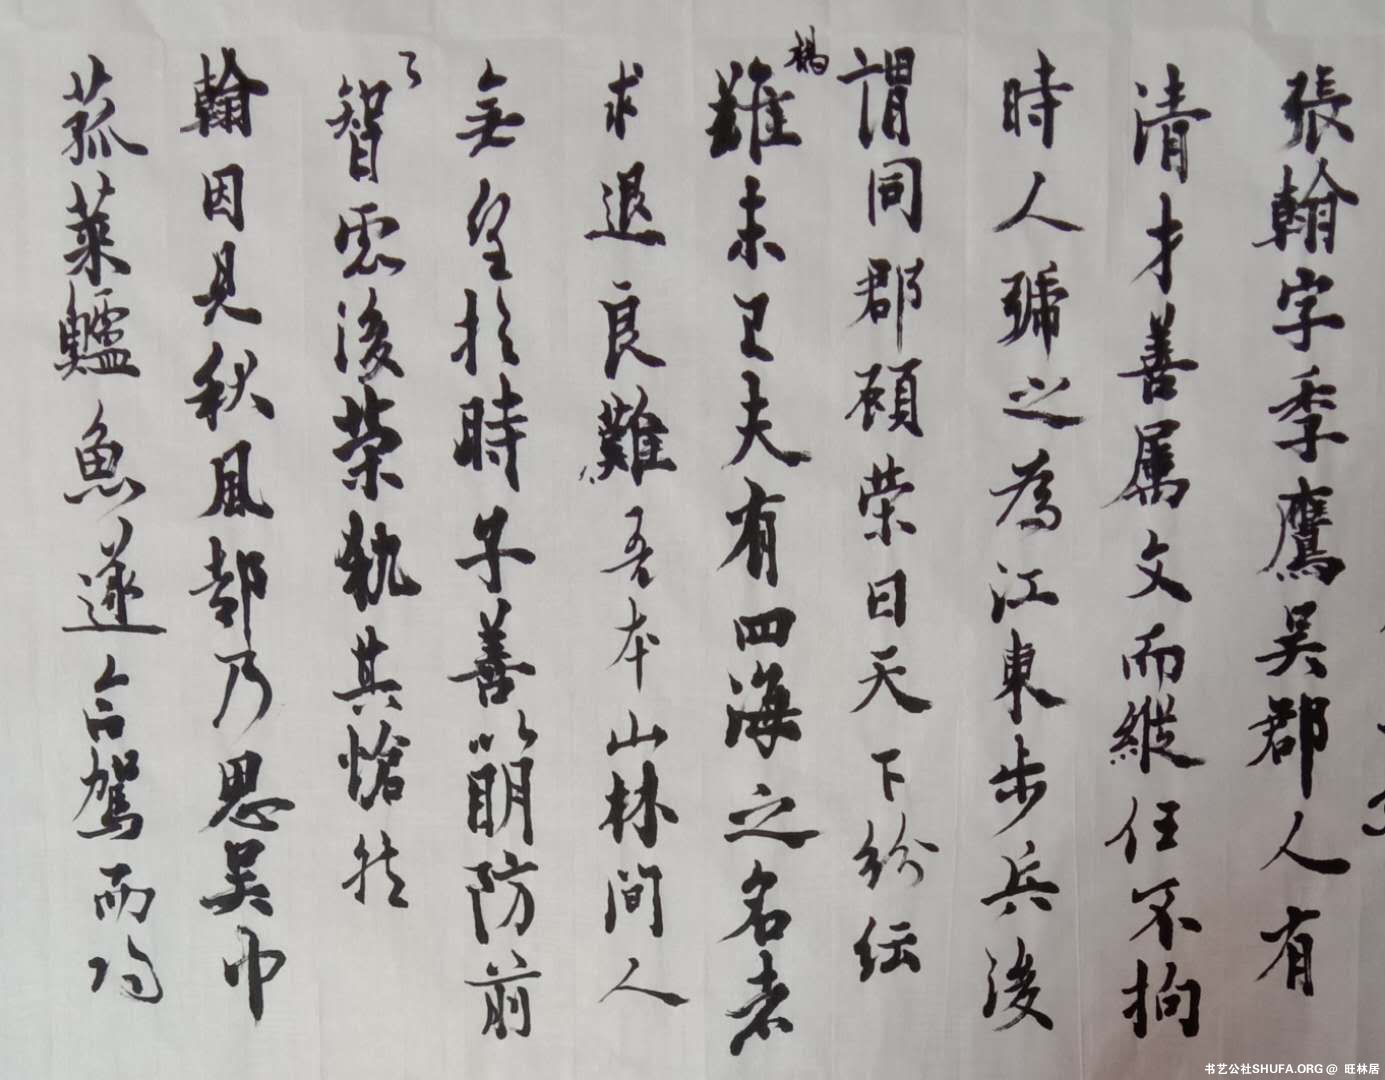 張翰字季鷹吳郡人有
清才善屬文而縱任不拘
時人號之為江東步兵後
謂同郡顧榮曰天下紛紜
禍
難未已夫有四海之名者
求退良難吾本山林間人
無望於時子善以明防前
以
智慮後榮執其愴然
翰因見秋風起乃思吳中
菰菜鱸魚遂命駕而歸
书艺公社SHUFA.ORG @ 旺林居